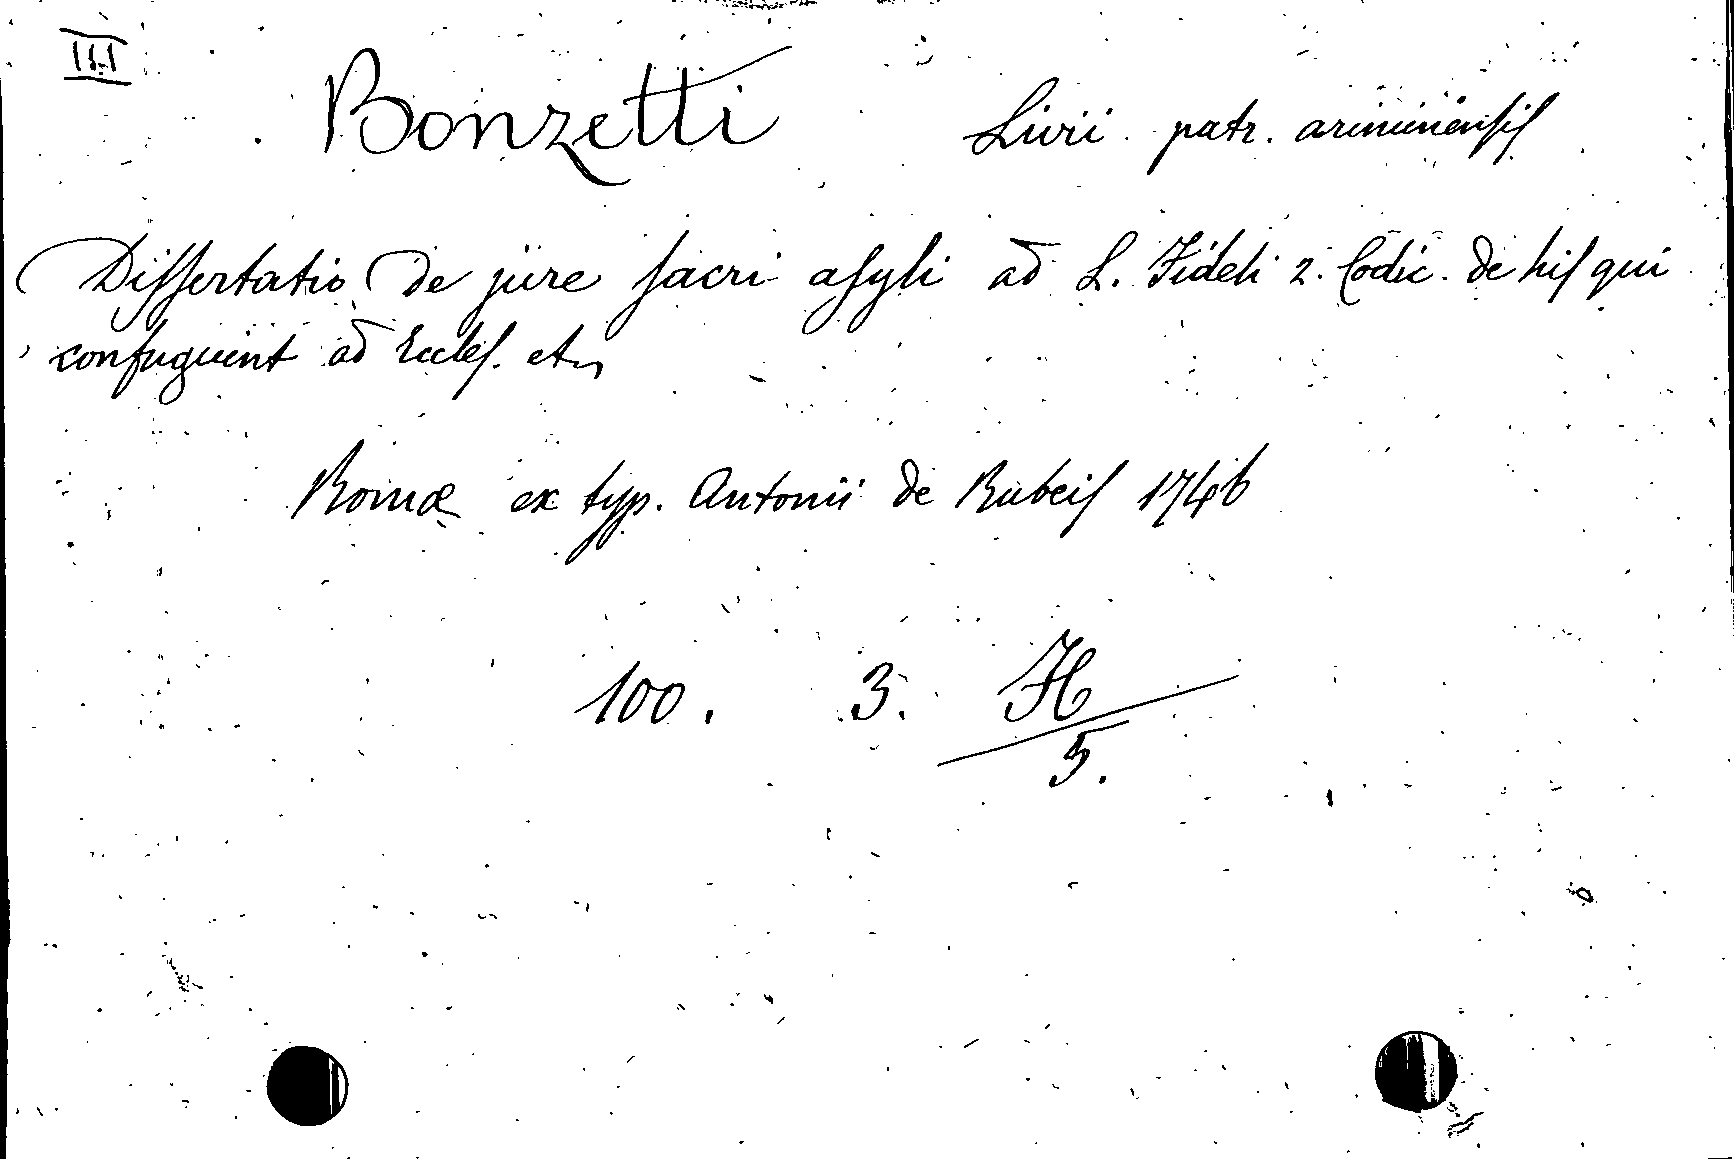 III
Bonzetti Livii patr. ariminensis
Dissertatio de jure sacri asyli ad L. Fideli 2. Codic. de his qui
confugiunt ad Eccles. etc
Romæ ex typ. Antonii de Rubeis 1746
100. 3. H
5.